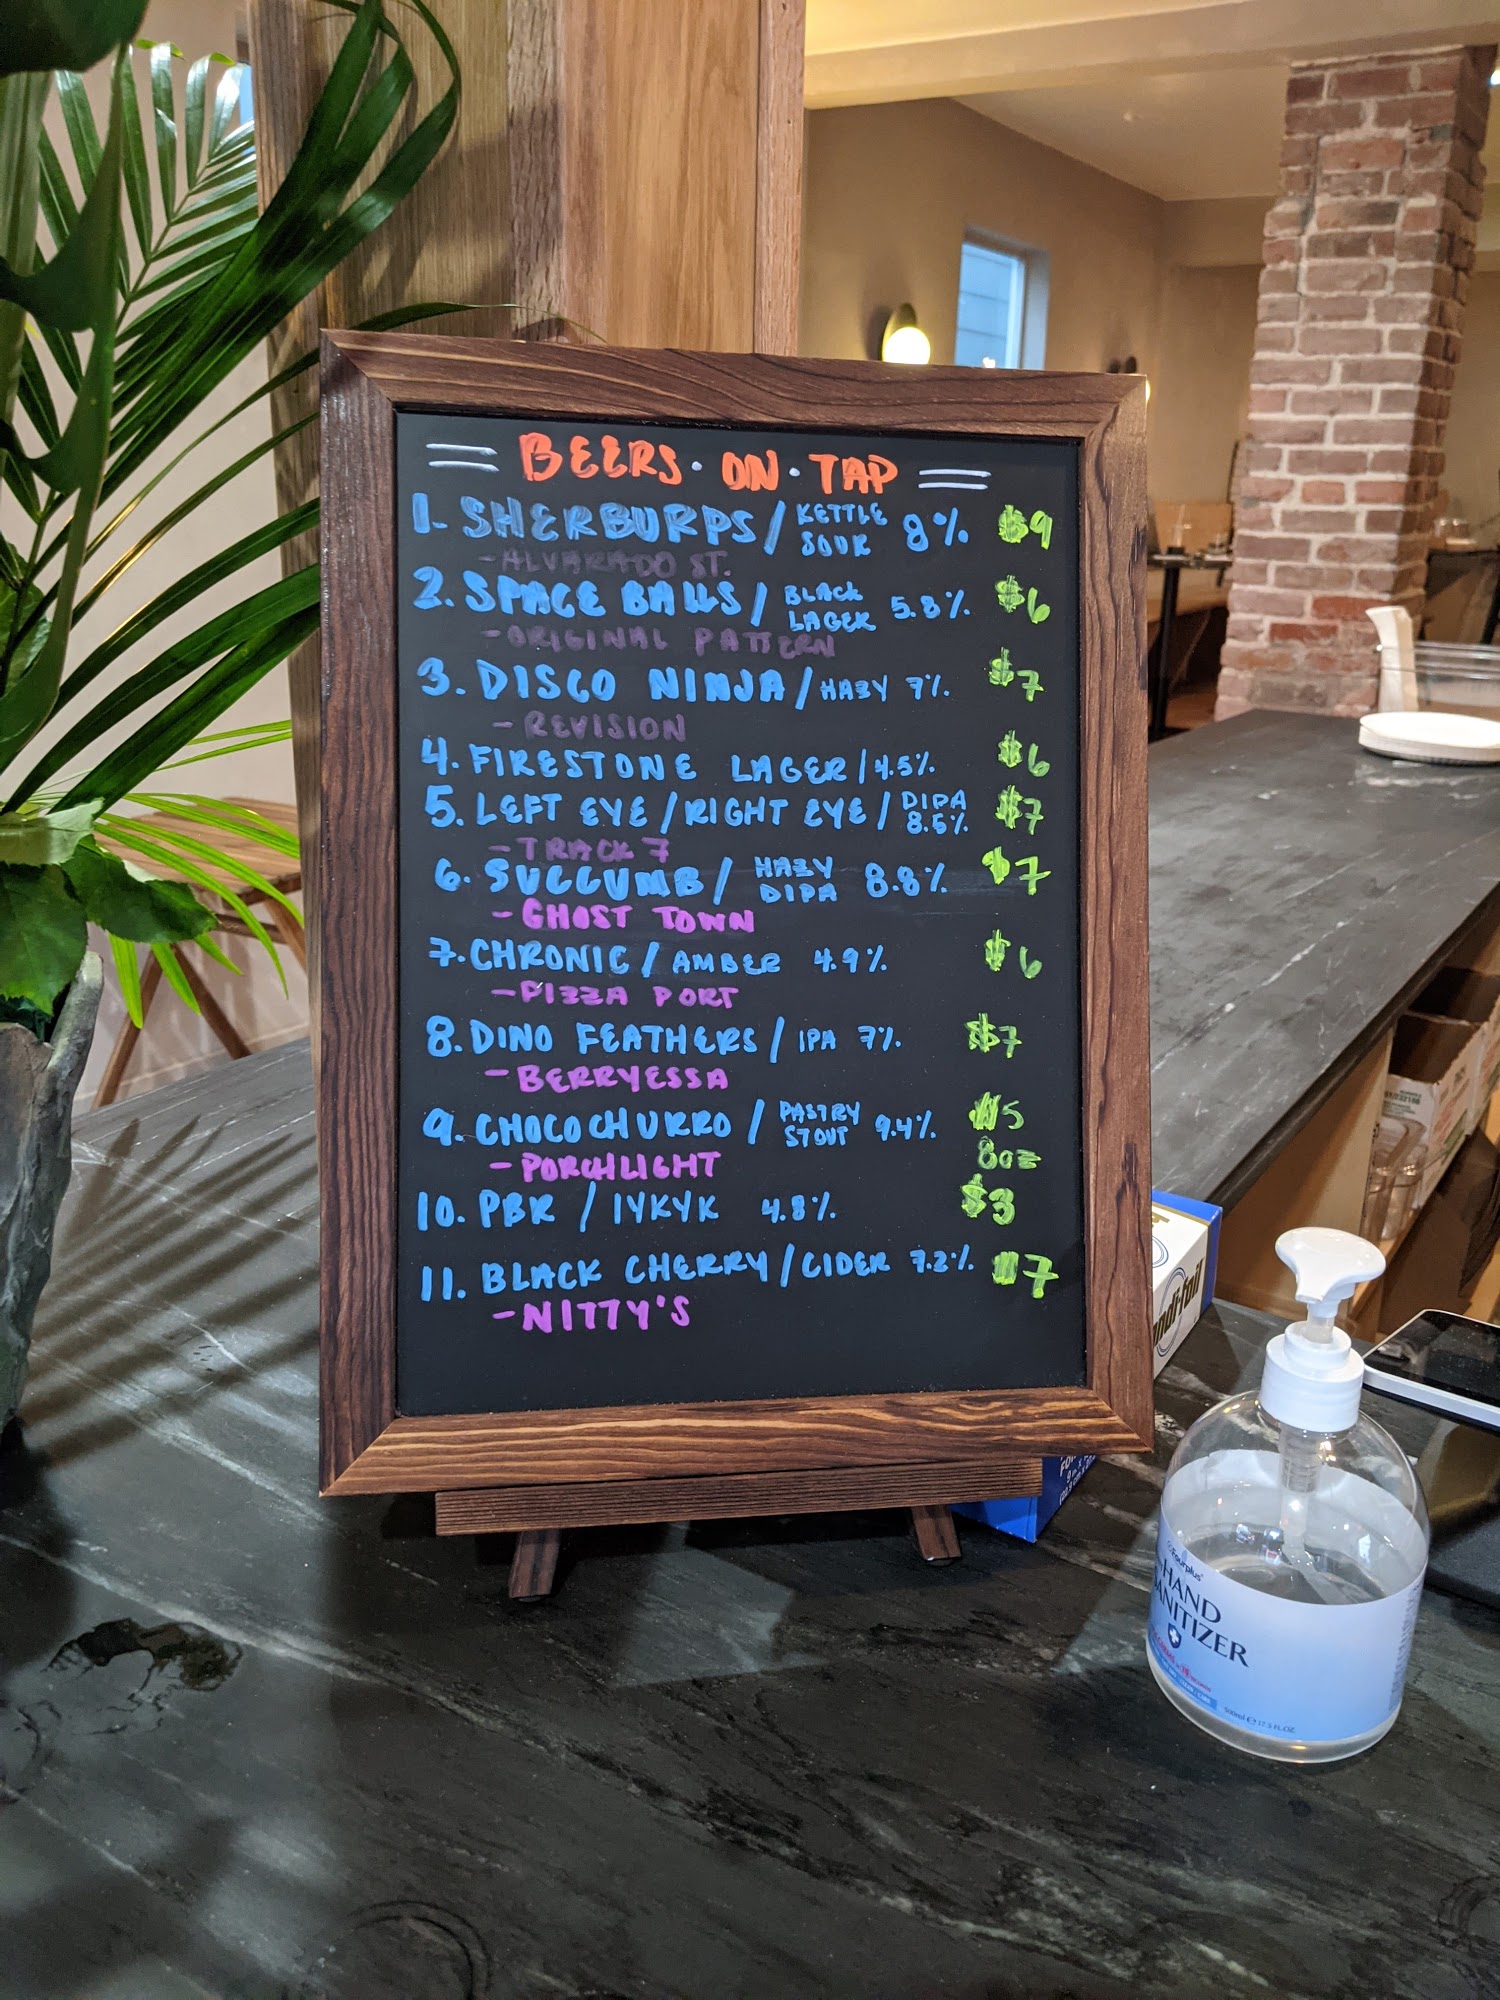 BEERS · ON · TAP
1. SHERBURPS / KETTLE SOUR 8% $9
- ALVARADO ST.
2. SPACE BALLS / BLACK LAGER 5.8% $6
- ORIGINAL PATTERN
3. DISCO NINJA / HAZY 7% $7
- REVISION
4. FIRESTONE LAGER / 4.5% $6
5. LEFT EYE / RIGHT EYE / DIPA 8.5% $7
- TRACK 7
6. SUCCUMB / HAZY DIPA 8.8% $7
- GHOST TOWN
7. CHRONIC / AMBER 4.9% $6
- PIZZA PORT
8. DINO FEATHERS / IPA 7% $7
- BERRYESSA
9. CHOCOCHURRO / PASTRY STOUT 9.4% $5
- PORCHLIGHT 8oz
10. PBR / IYKYK 4.8% $3
11. BLACK CHERRY / CIDER 7.2% $7
- NITTY'S
Fourplus
HAND
SANITIZER